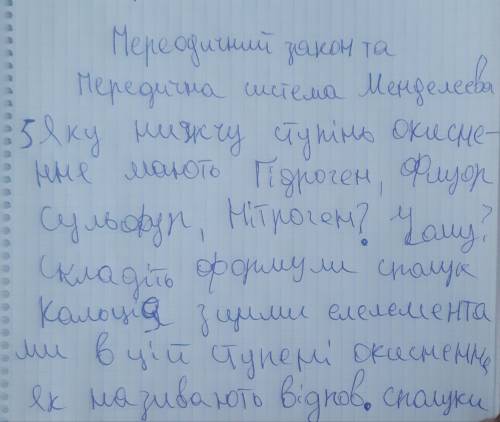 Переодичний закон та
Передична система Менделеєва
5 Яку нижчу ступінь окисне-
ння мають Гідроген, Флуор
Сульфур, Нітроген? Чому?
Складіть формули сполук
Калоція з цими елелемента
ми в цій ступені окисненн
як називають відпов. сполуки